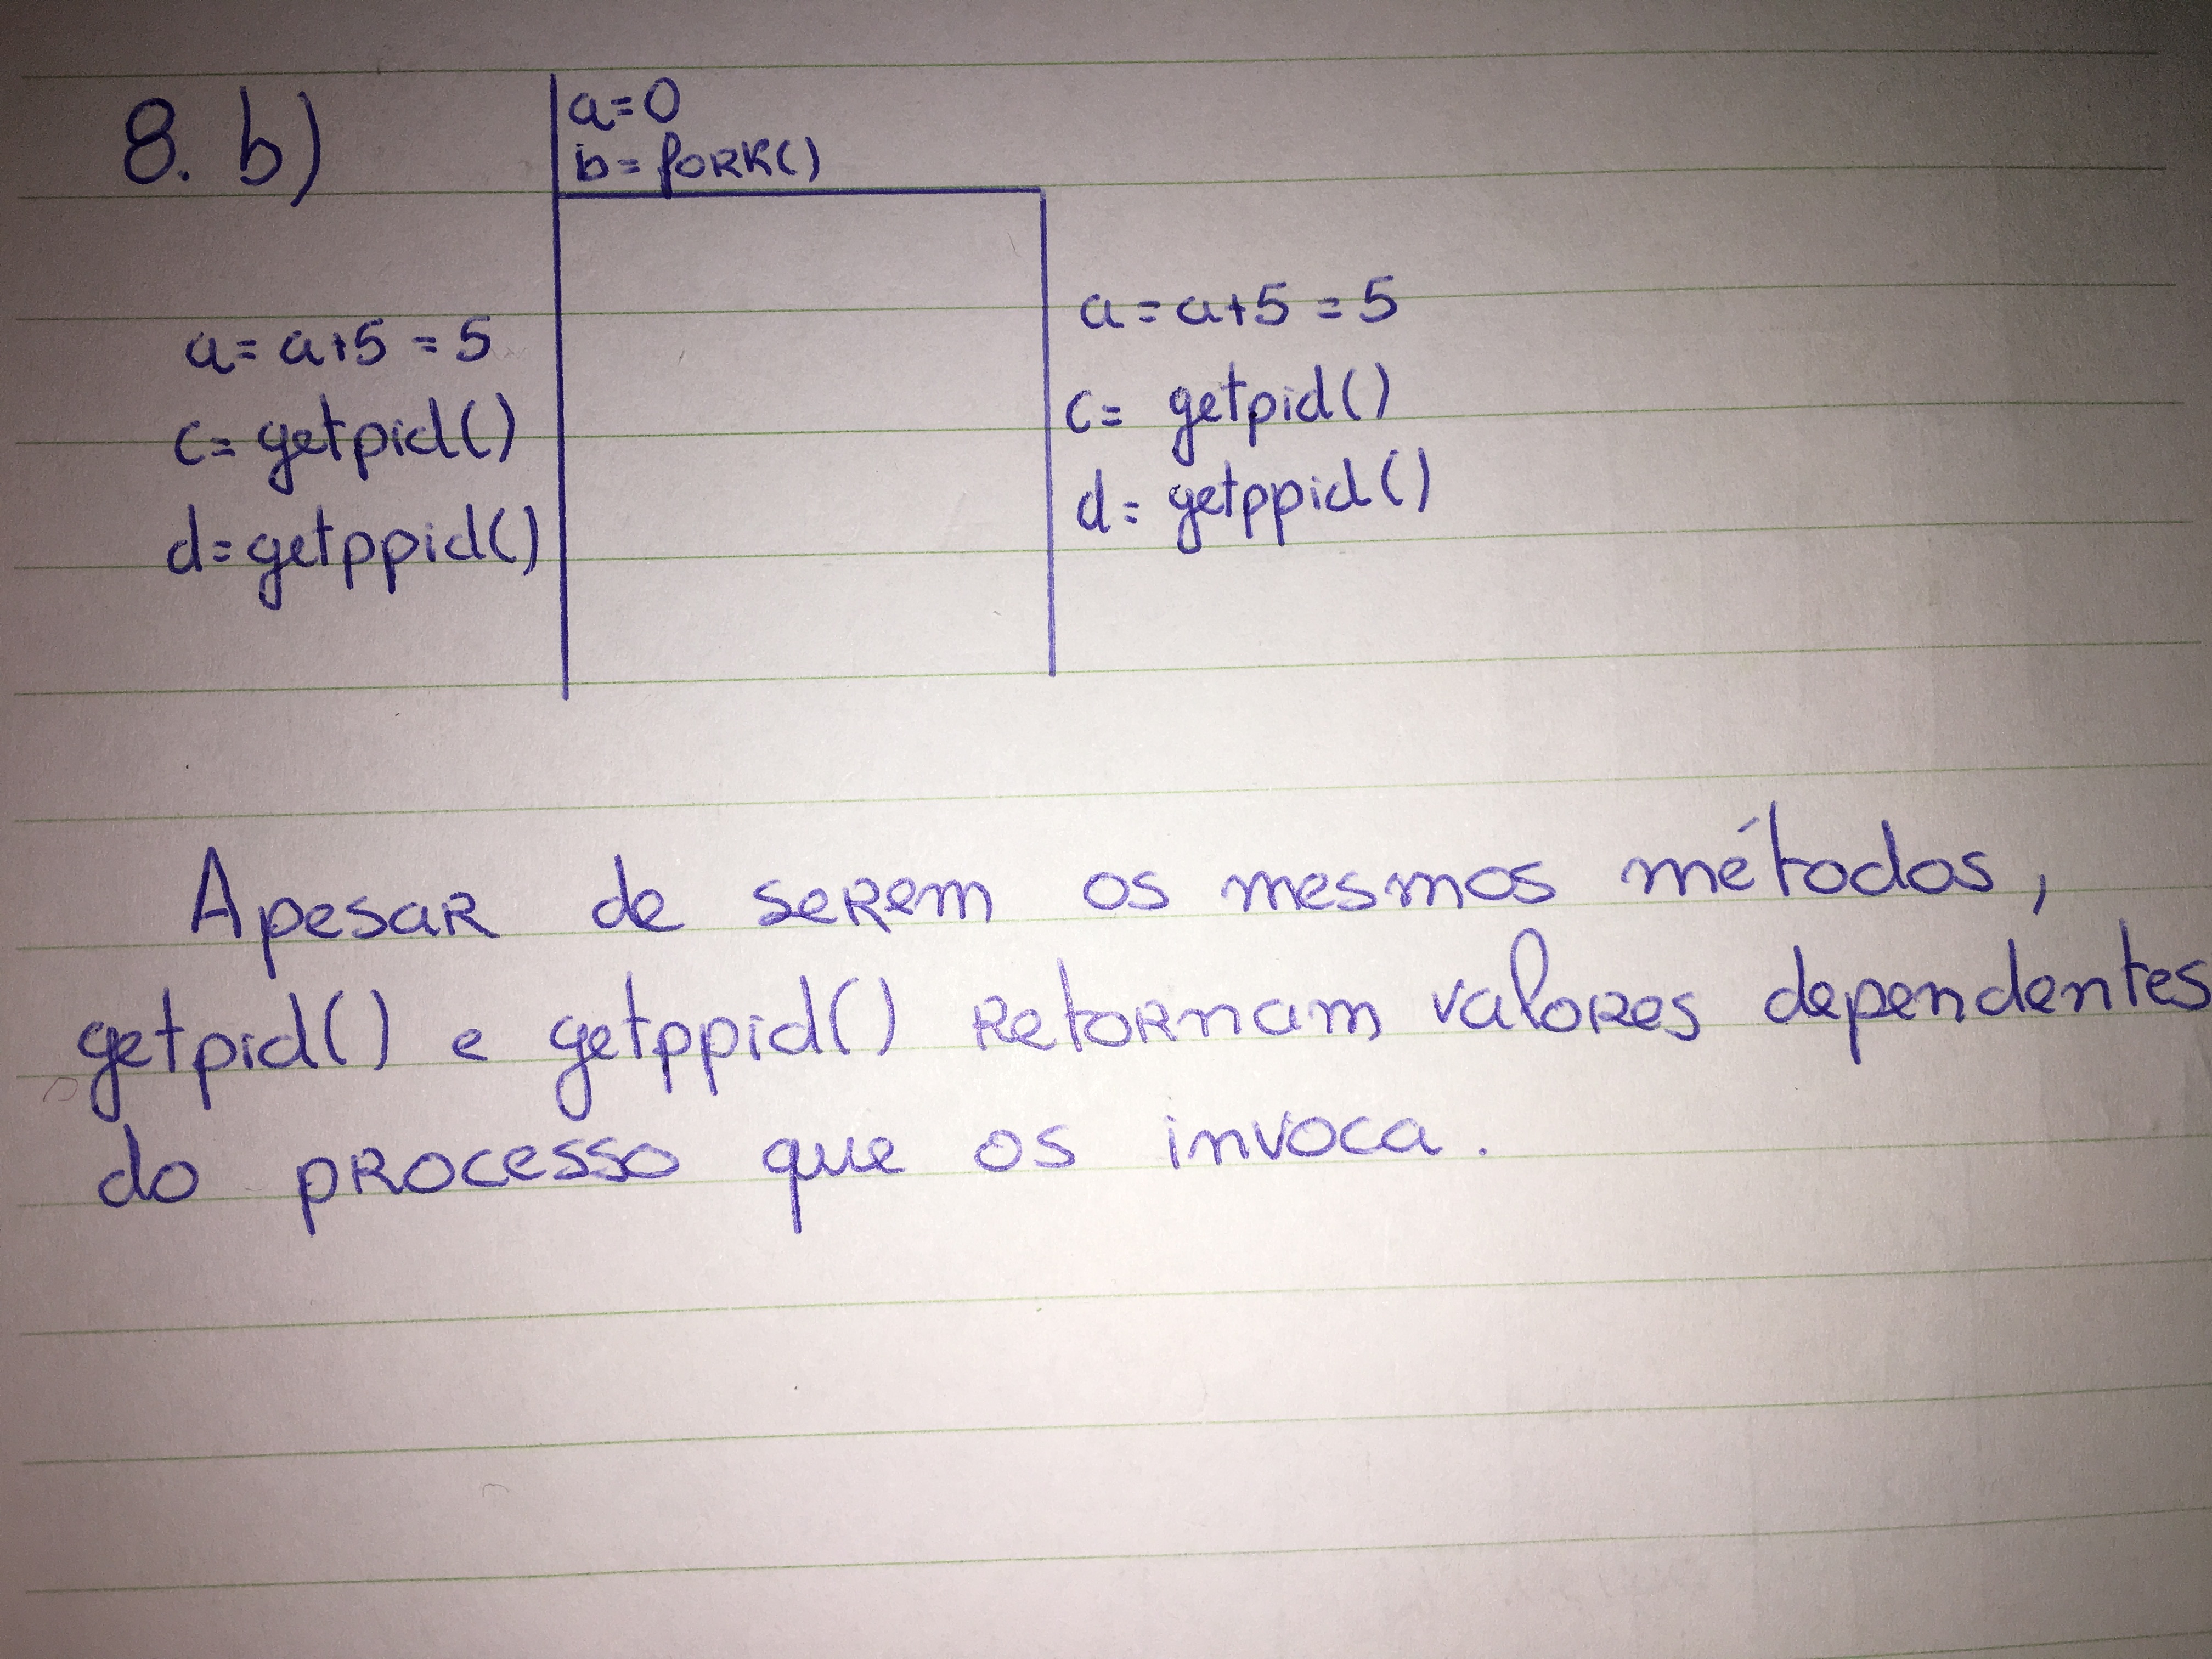 8. b)
a=0
b= fork()
a= a+5 = 5
c= getpid()
d= getppid()
a= a+5 = 5
c= getpid()
d= getppid()
Apesar de serem os mesmos métodos,
getpid() e getppid() retornam valores dependentes
do processo que os invoca.